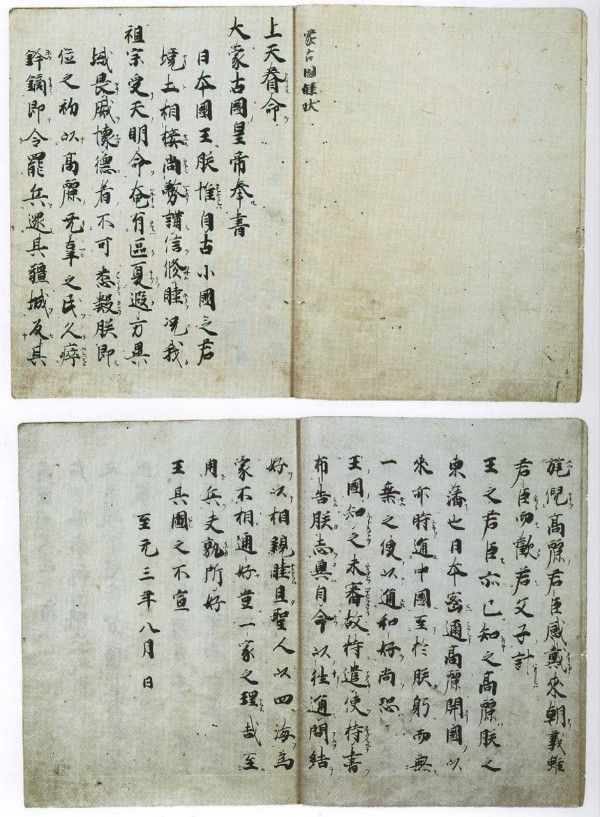 蒙古國牒狀
上天眷命
大蒙古國皇帝奉書
日本國王朕惟自古小國之君
境土相接尚務講信修睦况我
祖宗受天明命奄有區夏遐方異
域畏威懷德者不可悉數朕即
位之初以高麗无辜之民久瘁
鋒鏑即令罷兵還其疆域反其
旄倪高麗君臣感戴來朝義雖
君臣而歡若父子計
王之君臣亦已知之高麗朕之
東藩也日本密邇高麗開國以
來亦時通中國至於朕躬而無
一乘之使以通和好尚恐
王國知之未審故特遣使持書
布告朕志冀自今以往通問結
好以相親睦且聖人以四海為
家不相通好豈一家之理哉至
用兵夫孰所好
王其圖之不宣
至元三年八月 日